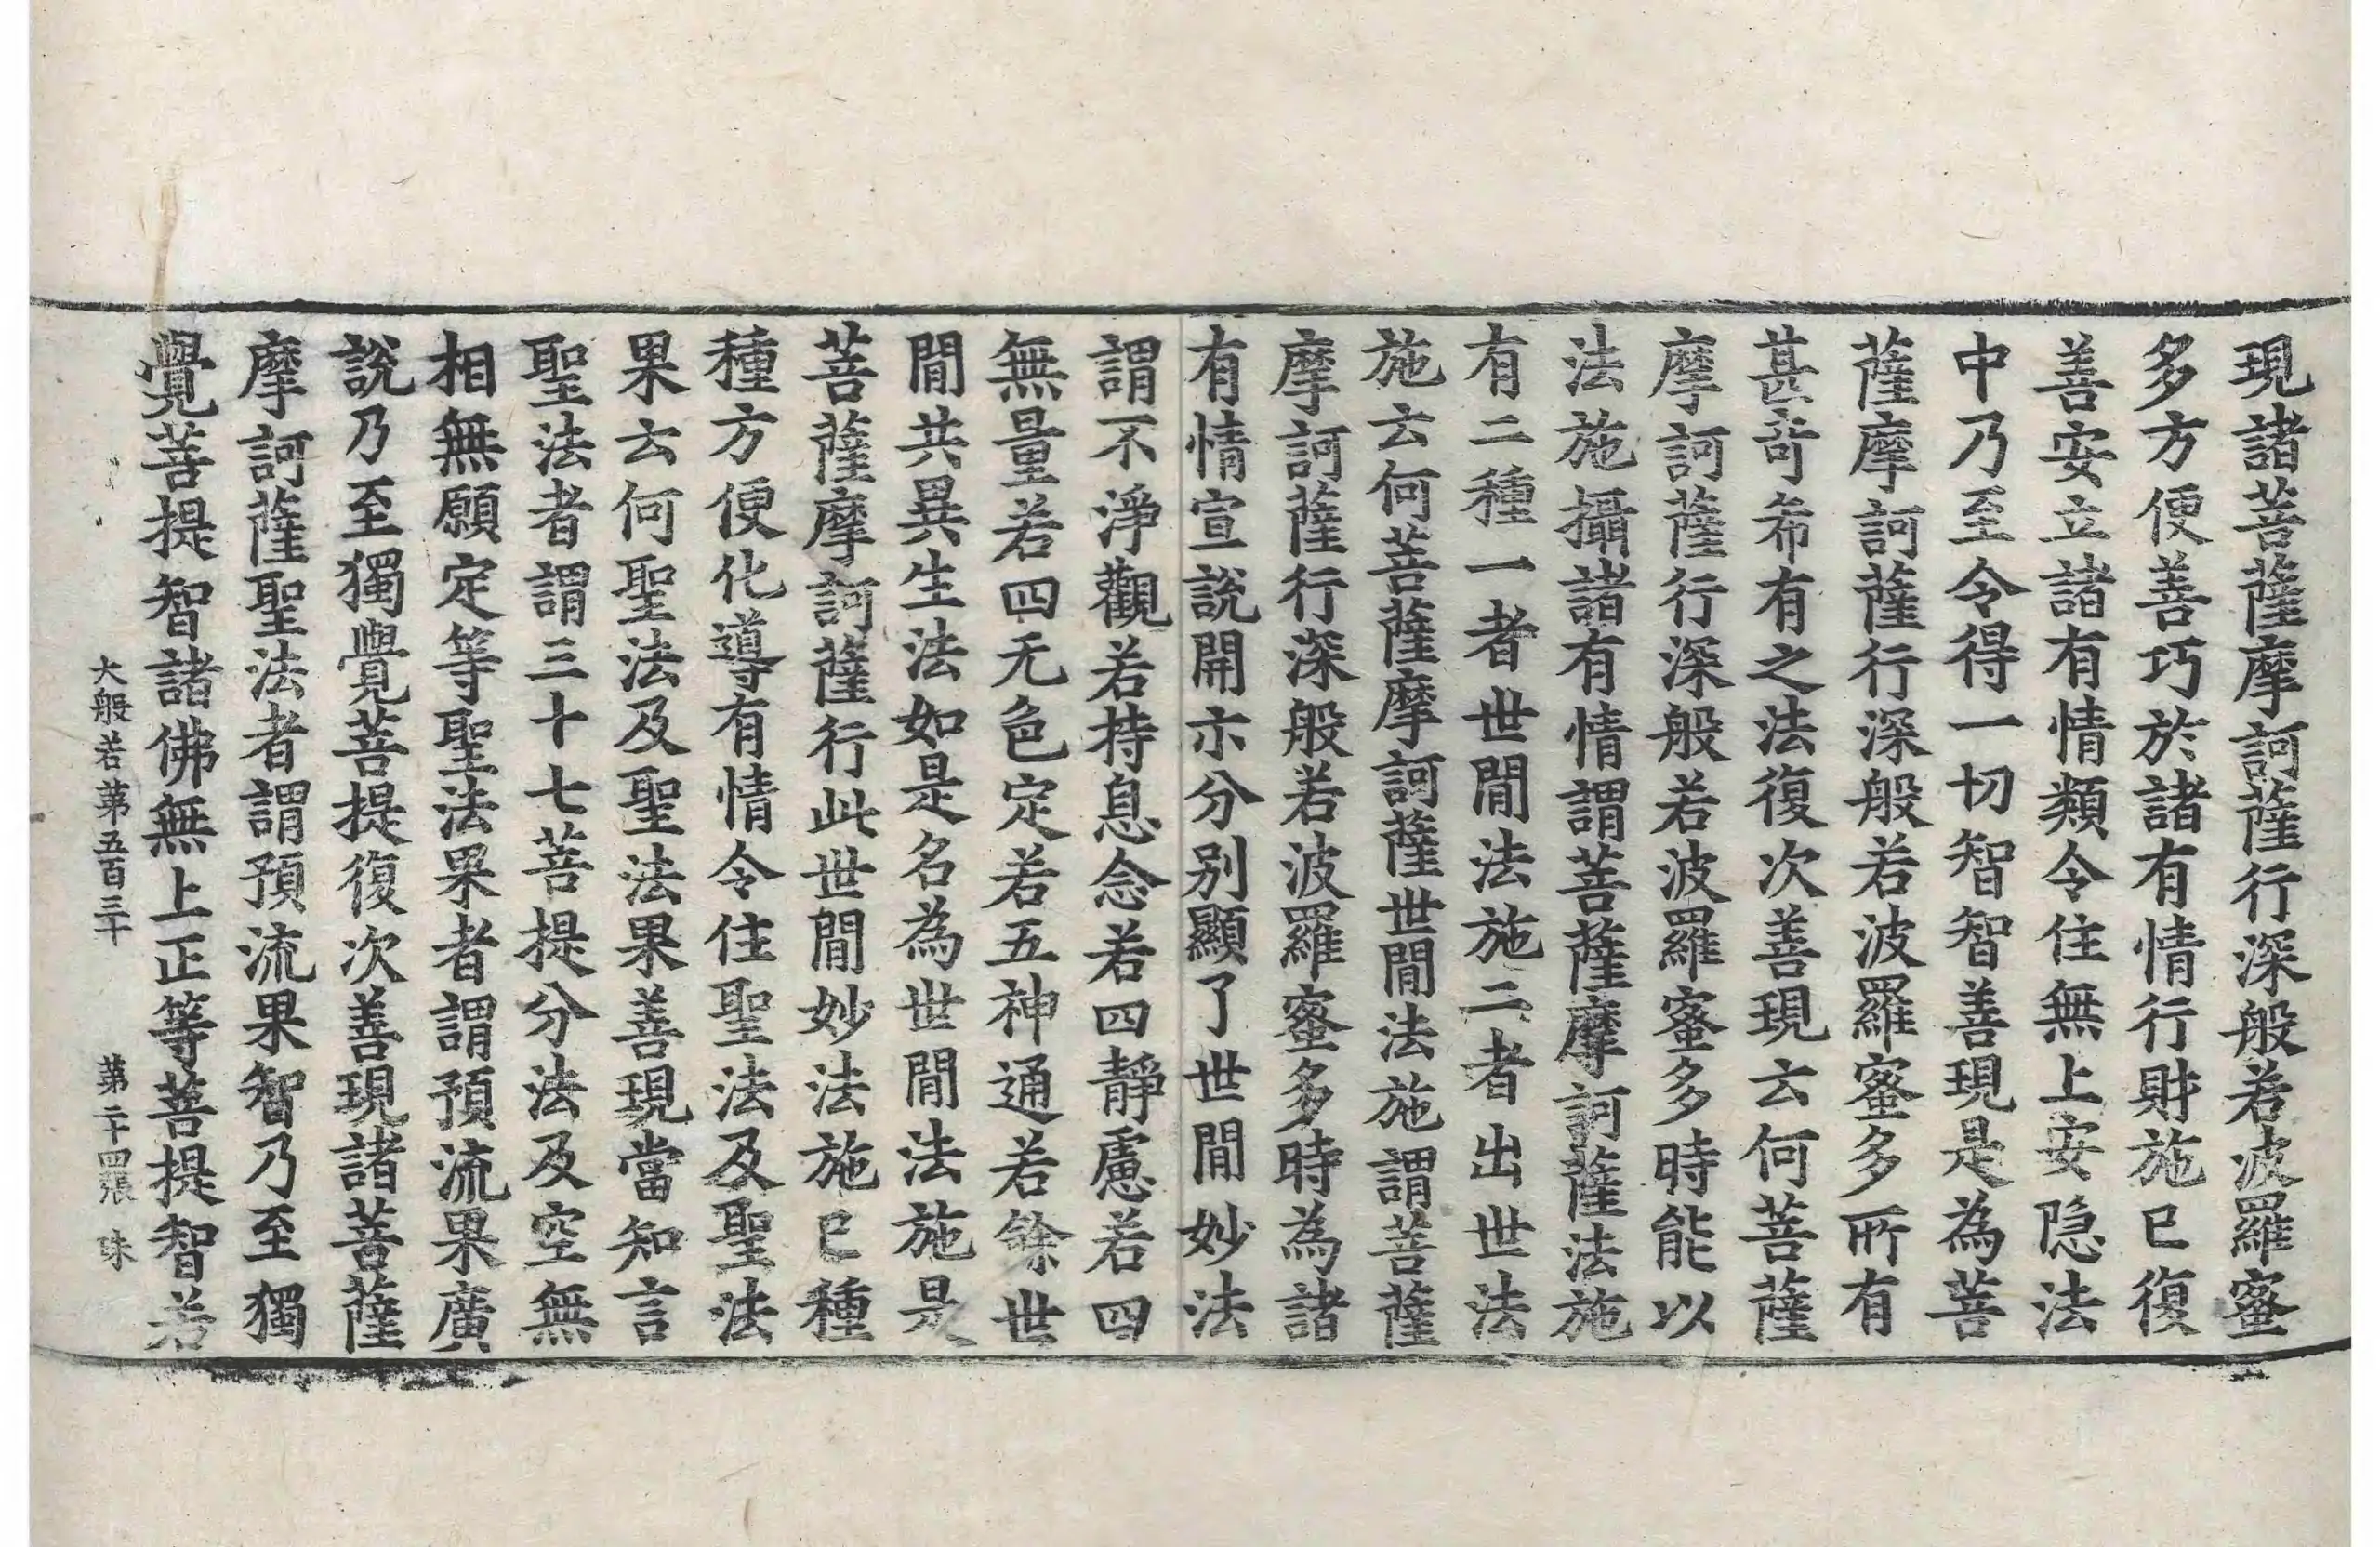 現諸菩薩摩訶薩行深般若波羅蜜
多方便善巧於諸有情行財施已復
善安立諸有情類令住無上安隐法
中乃至令得一切智智善現是為菩
薩摩訶薩行深般若波羅蜜多所有
甚奇希有之法復次善現云何菩薩
摩訶薩行深般若波羅蜜多時能以
法施攝諸有情謂菩薩摩訶薩法施
有二種一者世閒法施二者出世法
施云何菩薩摩訶薩世閒法施謂菩薩
摩訶薩行深般若波羅蜜多時為諸
有情宣說開示分別顯了世閒妙法
謂不淨觀若持息念若四靜慮若四
無量若四无色定若五神通若餘世
閒共異生法如是名為世閒法施是
菩薩摩訶薩行此世閒妙法施已種
種方便化導有情令住聖法及聖法
果云何聖法及聖法果善現當知言
聖法者謂三十七菩提分法及空無
相無願定等聖法果者謂預流果廣
說乃至獨覺菩提復次善現諸菩薩
摩訶薩聖法者謂預流果智乃至獨
覺菩提智諸佛無上正等菩提智若
大般若第五百三十 第二十四張 珠